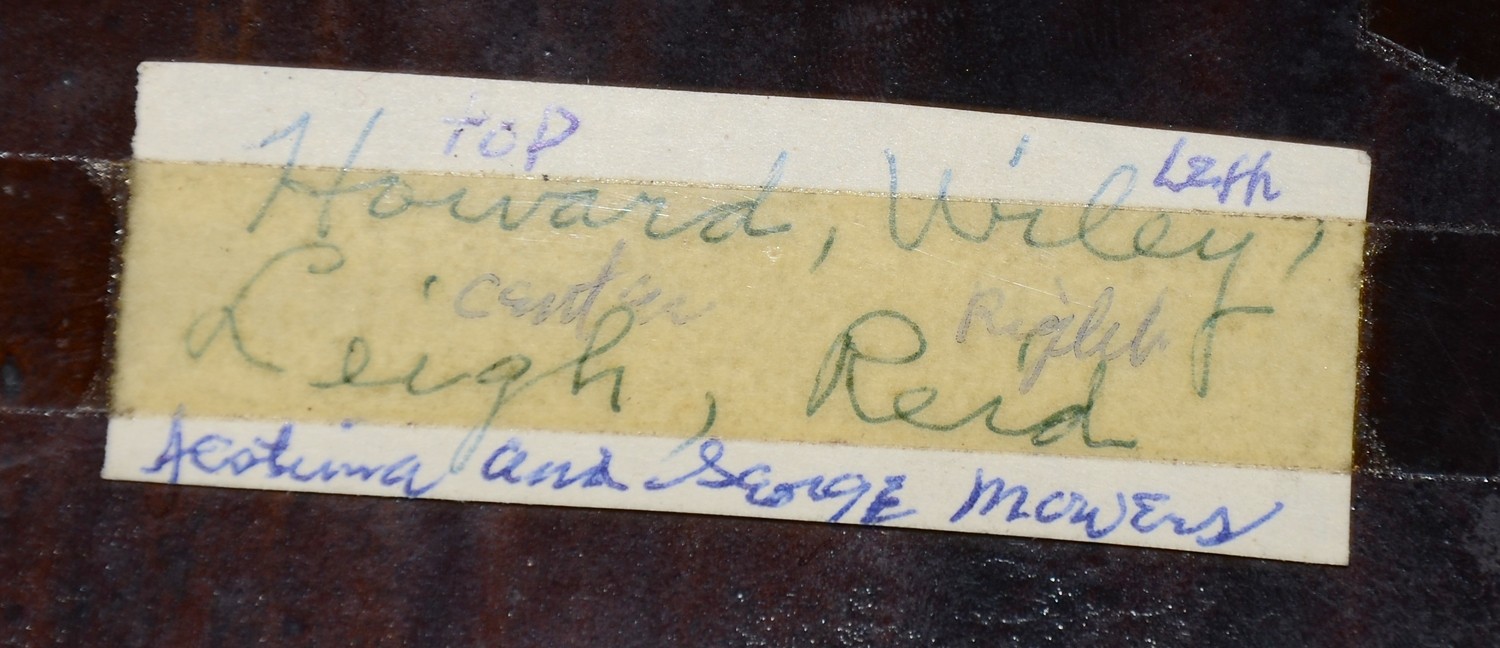 top Left
Howard, Wiley,
center Right
Leigh, Reid
and George Mowers